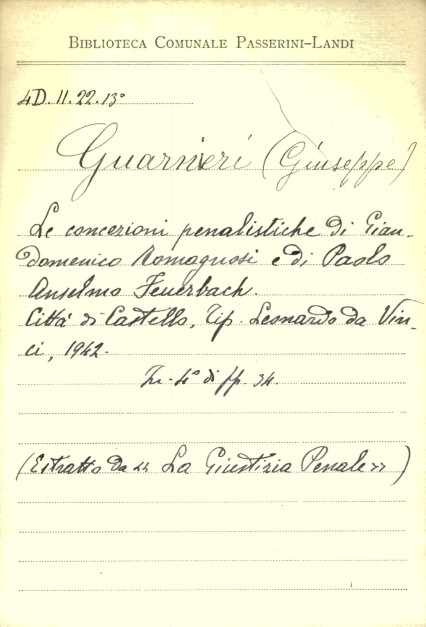 BIBLIOTECA COMUNALE PASSERINI-LANDI
4D.II.22.13°
Guarnieri (Giuseppe)
Le concezioni penalistiche di Gian-
domenico Romagnosi e di Paolo
Anselmo Feuerbach.
Città di Castello, Tip. Leonardo da Vin-
ci, 1942.
In-4° di pp. 34.
(Estratto da << La Giustizia Penale >>)